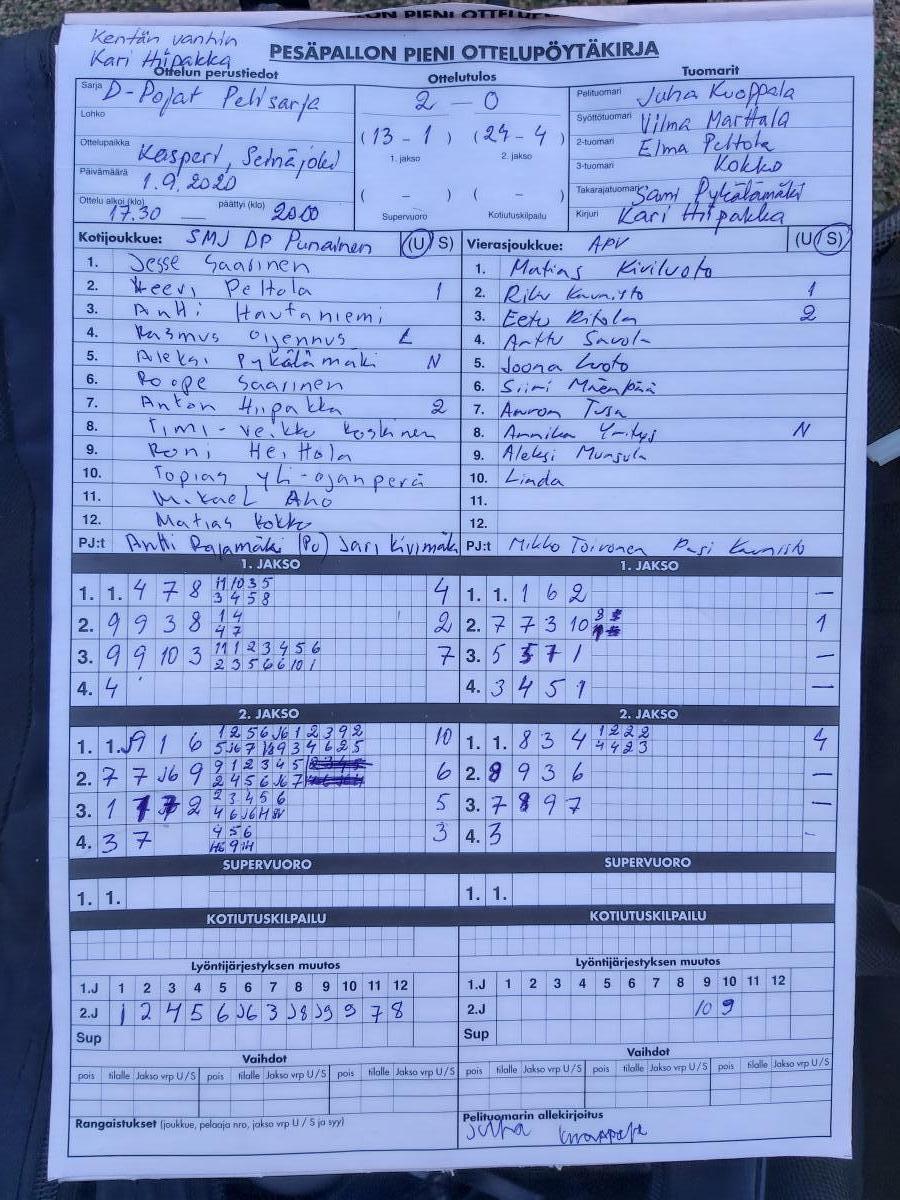 Kentän vanhin
Kari Hiipakka
PESÄPALLON PIENI OTTELUPÖYTÄKIRJA
Ottelun perustiedot
Sarja D-Pojat Pelisarja
Lohko
Ottelupaikka Kasperi, Seinäjoki
Päivämäärä 1.9.2020
Ottelu alkoi (klo) 17.30 — päättyi (klo) 20.00
Ottelutulos
2 - 0
(13 - 1) (24 - 4)
1. jakso 2. jakso
( - ) ( - )
Supervuoro Kotiutuskilpailu
Tuomarit
Pelituomari Juha Kuoppala
Syöttötuomari Vilma Marttala
2-tuomari Elma Peltola
3-tuomari Kokko
Takarajatuomari Sami Pykälämäki
Kirjuri Kari Hiipakka
Kotijoukkue: SMJ DP Punainen (U/S)
1. Jesse Saarinen
2. Veeri Peltola 1
3. Antti Hautaniemi
4. Rasmus Ojennus L
5. Aleksi Pykälämäki N
6. Roope Saarinen
7. Anton Hiipakka 2
8. Timi-Veikko Koskinen
9. Roni Heittola
10. Topias Yli-Ojanperä
11. Mikael Aho
12. Matias Kokko
PJ:t Antti Rajamäki (PU) Jari Kivimäki
Vierasjoukkue: APV (U/S)
1. Matias Kiviluoto
2. Riku Kaunisto 1
3. Eetu Ritola 2
4. Arttu Savola
5. Joona Luoto
6. Siiri Mäenpää
7. Aaron Tusa
8. Annika Yritys N
9. Aleksi Munsula
10. Linda
11.
12.
PJ:t Mikko Toivonen Pasi Kaunisto
1. JAKSO
1. 1. 4 7 8 11 10 3 5 4
3 4 5 8
2. 9 9 3 8 1 4 2
4 7
3. 9 9 10 3 11 1 2 3 4 5 6 7
2 3 5 6 6 10 1
4. 4
1. JAKSO
1. 1. 1 6 2 —
2. 7 7 3 10 8 1
3. 5 5 7 1 —
4. 3 4 5 1 —
2. JAKSO
1. 1. J9 1 6 1 2 5 6 J6 1 2 3 9 2 10
2. 7 7 J6 9 9 1 2 3 4 5 6
2 4 5 6 J6 7
3. 1 2 2 3 4 5 6 5
4. 3 7 4 5 6 3
2. JAKSO
1. 1. 8 3 4 1 2 2 2 4
4 4 2 3
2. 8 9 3 6 —
3. 7 8 9 7 —
4. 3 -
SUPERVUORO
1. 1.
SUPERVUORO
1. 1.
KOTIUTUSKILPAILU
KOTIUTUSKILPAILU
Lyöntijärjestyksen muutos
1.J 1 2 3 4 5 6 7 8 9 10 11 12
2.J 1 2 4 5 6 J6 3 J8 J9 9 7 8
Sup
Lyöntijärjestyksen muutos
1.J 1 2 3 4 5 6 7 8 9 10 11 12
2.J 10 9
Sup
Vaihdot
pois tilalle Jakso vrp U/S pois tilalle Jakso vrp U/S pois tilalle Jakso vrp U/S
Vaihdot
pois tilalle Jakso vrp U/S pois tilalle Jakso vrp U/S pois tilalle Jakso vrp U/S
Rangaistukset (joukkue, pelaaja nro, jakso vrp U / S ja syy)
Pelituomarin allekirjoitus
Juha Kuoppala